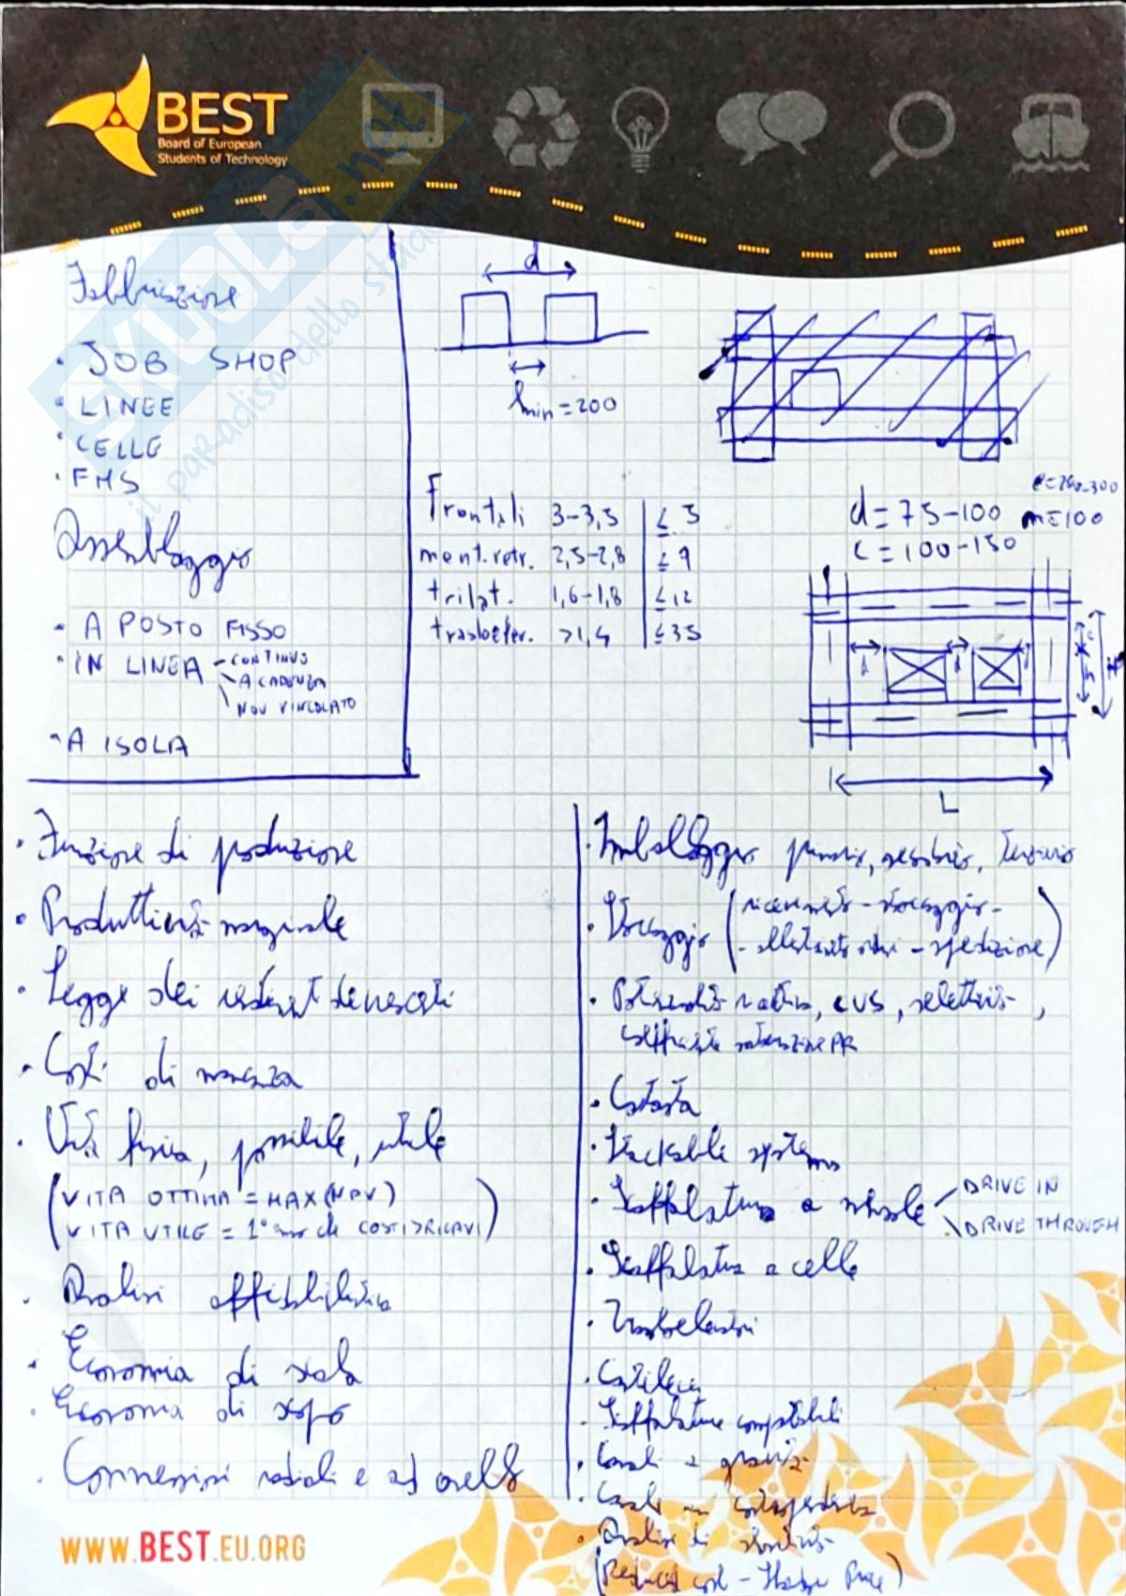 BEST
Board of European
Students of Technology
SKUOLA.net
il paradiso dello studente
Fabbricazione
· JOB SHOP
· LINEE
· CELLE
· FMS
Assemblaggio
· A POSTO FISSO
· IN LINEA
CONTINUO
A CADENZA
NON VINCOLATO
· A ISOLA
d
min = 200
Frontali 3-3,5 ≤ 5
mont. retr. 2,5-2,8 ≤ 9
trilat. 1,6-1,8 ≤ 12
trasloelev. >1,4 ≤ 35
d = 75-100 m=100
c = 100-150
L
· Funzione di produzione
· Produttività marginale
· Legge dei rendimenti decrescenti
· Costi di mancanza
· Vita fisica, possibile, utile
(VITA OTTIMA = MAX(NPV)
VITA UTILE = 1° anno di COSTI>RICAVI)
· Analisi affidabilistica
· Economia di scala
· Economia di scopo
· Connessioni radiali e ad anello
· Imballaggio primario, secondario, terziario
· Stoccaggio (ricevimento - stoccaggio -
- allestimento ordini - spedizione)
· Potenzialità ricettiva, CUS, selettività,
coefficiente saturazione PR
· Catasta
· Stackable systems
· Scaffalatura a
DRIVE IN
DRIVE THROUGH
· Scaffalatura a celle
· Trasloelevatori
· Cantilever
· Scaffalature compattabili
· Canali a gravità
· Canali in contropendenza
· Analisi di sensitività
(Reduced cost - Shadow Price)
WWW.BEST.EU.ORG